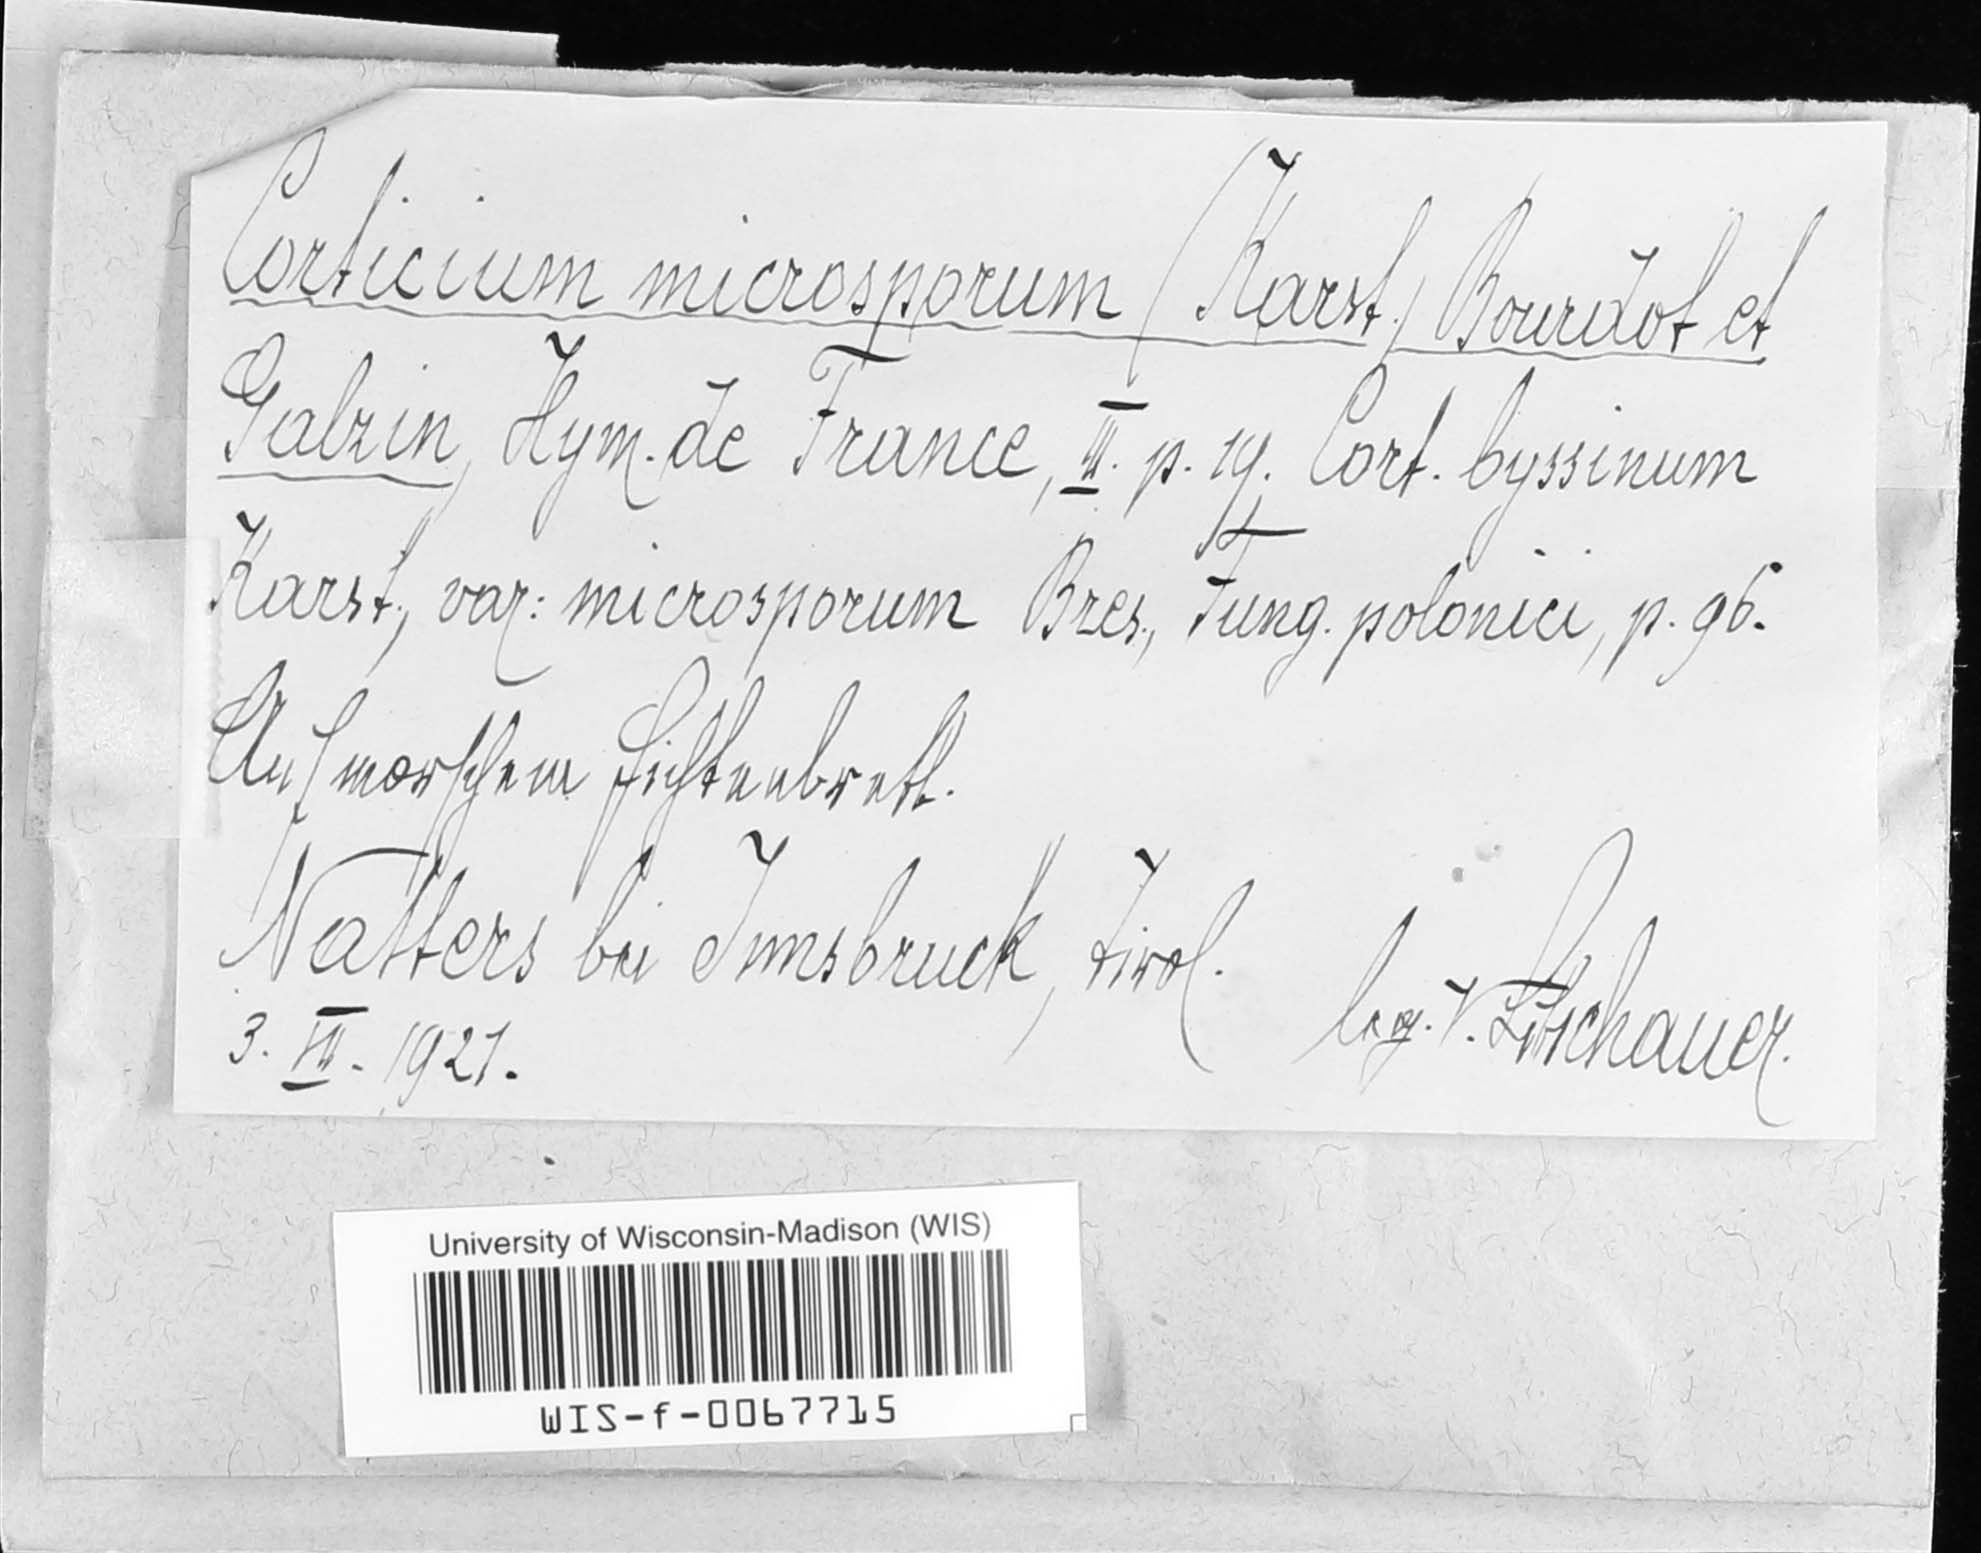 Corticium microsporum (Karst.) Bourdot et
Galzin, Hym. de France, III. p. 19. Cort. byssinum
Karst., var: microsporum Bres., Fung. polonici, p. 96.
Auf morschem Fichtenbrett.
Natters bei Innsbruck, Tirol.
leg. V. Litschauer.
3. 1921.
University of Wisconsin-Madison (WIS)
WIS-f-0067715